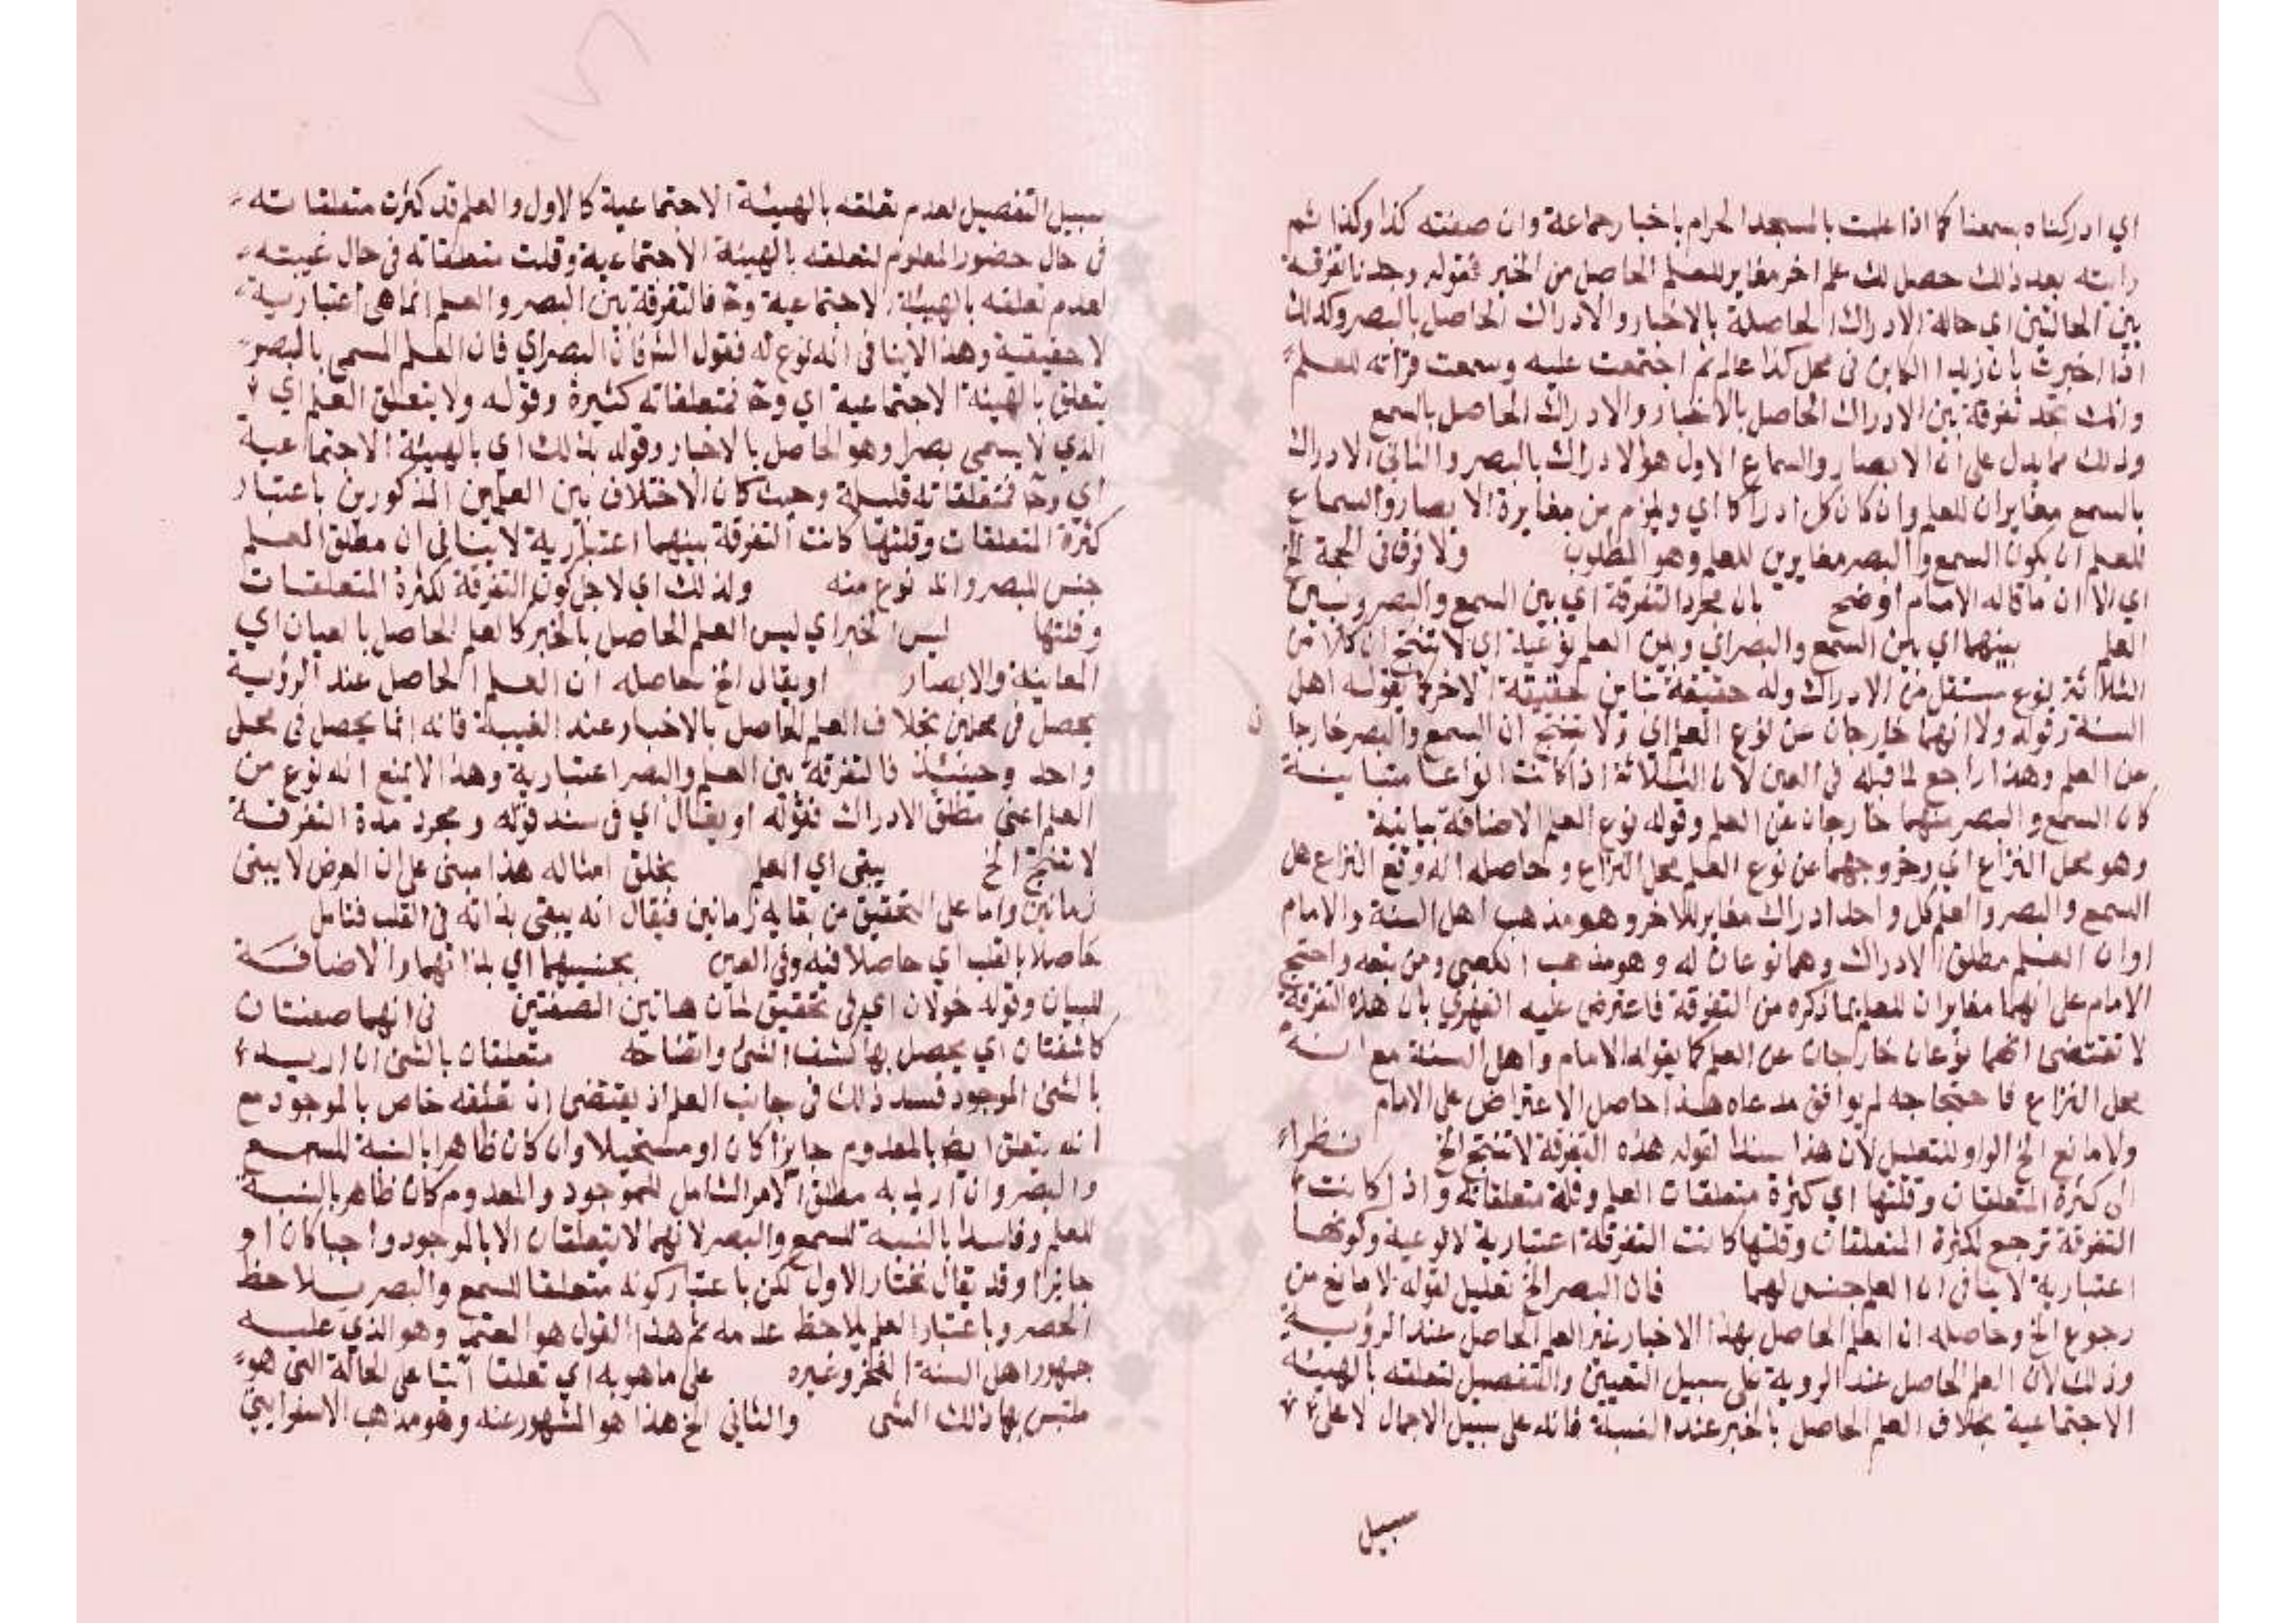 اي ادركناه بسمعنا كما اذا علمت بالمسجد الحرام باخبار جماعة وان صفته كذا وكذا ثم
رايته بعد ذلك حصل لك علم اخر مغاير للعلم الحاصل من الخبر فقوله وجدنا تفرقة
بين الحالتين اي حالة الادراك الحاصلة بالاخبار والادراك الحاصل بالبصر وكذلك
اذا اخبرت بان زيدا الكاين في محل كذا عالم ثم اجتمعت عليه وسمعت قرأته للعلم
وانك تجد تفرقة بين الادراك الحاصل بالاخبار والادراك الحاصل بالسمع
وذلك مما يدل على ان الابصار والسماع الاول هو الادراك بالبصر والثاني الادراك
بالسمع مغايران للعلم وان كان كل ادراكا اي ويلزم من مغايرة الابصار والسماع
للعلم ان يكون السمع والبصر مغايرين للعلم وهو المطلوب ولا فرق في الحجة الخ
اي الا ان ما قاله الامام اوضح بان مجرد التفرقة اي بين السمع والبصر وبين
العلم بينهما اي بين السمع والبصر اي وبين العلم نوعية اي لا تنتج ان كلا من
الثلاثة نوع مستقل من الادراك وله حقيقة تباين حقيقة الاخر كما يقوله اهل
السنة وقوله ولا انهما خارجان عن نوع العلم اي ولا تنتج ان السمع والبصر خارجان
عن العلم وهذا راجع لما قبله في العين لان الثلاثة اذا كانت انواعا متباينة
كان السمع والبصر منهما خارجان عن العلم وقوله نوع العلم الاضافة بيانية
وهو محل النزاع اي وخروجهما عن نوع العلم محل النزاع وحاصله انه وقع النزاع هل
السمع والبصر والعلم كل واحد ادراك مغاير للاخر وهو مذهب اهل السنة والامام
او ان العلم مطلق الادراك وهما نوعان له وهو مذهب الكعبي ومن تبعه واحتج
الامام على انهما مغايران للعلم بما ذكره من التفرقة فاعترض عليه الفهري بان هذه التفرقة
لا تقتضي انهما نوعان خارجان عن العلم كما يقوله الامام واهل السنة مع انه
محل النزاع فاحتجاجه لم يوافق مدعاه هذا حاصل الاعتراض على الامام
ولا مانع الخ الواو للتعليل لان هذا سندا لقوله هذه التفرقة لا تنتج الخ نظرا
الى كثرة المتعلقات وقلتها اي كثرة متعلقات العلم وقلة متعلقاته واذا كانت
التفرقة ترجع لكثرة المتعلقات وقلتها كانت التفرقة اعتبارية لا نوعية وكونها
اعتبارية لا ينافي ان العلم جنس لهما فان البصر الخ تعليل لقوله لا مانع من
رجوع الخ وحاصله ان العلم الحاصل بهذا الاخبار غير العلم الحاصل عند الرؤية
وذلك لان العلم الحاصل عند الروية على سبيل التعيين والتفصيل لتعلقه بالهيئة
الاجتماعية بخلاف العلم الحاصل بالخبر عند الغيبة فانه على سبيل الاجمال لا على
سبيل
سبيل التفصيل لعدم تعلقه بالهيئة الاجتماعية كالاول والعلم قد كثرت متعلقاته
في حال حضور المعلوم لتعلقه بالهيئة الاجتماعية وقلت متعلقاته في حال غيبته
لعدم تعلقه بالهيئة الاجتماعية وح فالتفرقة بين البصر والعلم انما هي اعتبارية
لا حقيقية وهذا لا ينافي انه نوع له فقول الش فان البصر اي فان العلم المسمى بالبصر
يتعلق بالهيئة الاجتماعية اي وح فمتعلقاته كثيرة وقوله ولا يتعلق العلم اي
الذي لا يسمى بصرا وهو الحاصل بالاخبار وقوله بذلك اي بالهيئة الاجتماعية
اي وح فمتعلقاته قليلة وحيث كان الاختلاف بين العلمين المذكورين باعتبار
كثرة المتعلقات وقلتها كانت التفرقة بينهما اعتبارية لا ينافي ان مطلق العلم
جنس للبصر وانه نوع منه ولذلك اي لاجل كون التفرقة لكثرة المتعلقات
وقلتها ليس الخبر اي ليس العلم الحاصل بالخبر كالعلم الحاصل بالعيان اي
المعاينة والابصار او يقال الخ حاصله ان العلم الحاصل عند الرؤية
يحصل في محلين بخلاف العلم الحاصل بالاخبار عند الغيبة فانه انما يحصل في محل
واحد وحينئذ فالتفرقة بين العلم والبصر اعتبارية وهذا لا يمنع انه نوع من
العلم اعني مطلق الادراك فقوله او يقال اي في سند قوله ومجرد هذه التفرقة
لا تنتج الخ يبقى اي العلم بخلق امثاله هذا مبني على ان العرض لا يبقى
زمانين واما على التحقيق من بقايه زمانين فيقال انه يبقى بذاته في القلب فتامل
حاصلا بالقلب اي حاصلا فيه وفي العين بجنسيهما اي بذاتهما والاضافة
للبيان وقوله خولان اي في تحقيق لمان هاتين الصفتين في انهما صفتان
كاشفتان اي يحصل بهما كشف الشئ واتضاحه متعلقان بالشئ ان اريد
بالشئ الموجود فسد ذلك في جانب العلم اذ يقتضي ان تعلقه خاص بالموجود مع
انه يتعلق ايض بالمعدوم جايزا كان او مستحيلا وان كان ظاهرا بالنسبة للسمع
والبصر وان اريد به مطلق الامر الشامل للموجود والمعدوم كان ظاهر بالنسبة
للعلم وفاسدا بالنسبة للسمع والبصر لانهما لا يتعلقان الا بالموجود واجبا كان او
جايزا وقد يقال نختار الاول لكن باعتبار كونه متعلقا للسمع والبصر يلاحظ
الحصر وباعتبار العلم يلاحظ عدمه ثم هذا القول هو المعتمد وهو الذي عليه
جمهور اهل السنة الفخر وغيره على ما هو به اي تعلقا آتيا على الحالة التي هو
ملتبس بها ذلك الشئ والثاني الخ هذا هو المشهور عنه وهو مذهب الاسفرايني